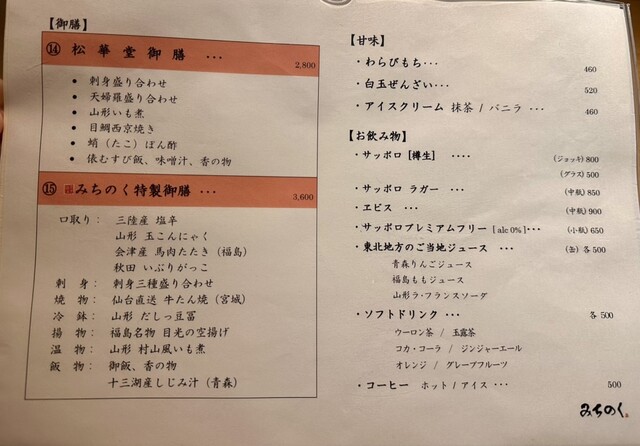 【御膳】
⑭ 松華堂御膳 ･･･ 2,800
• 刺身盛り合わせ
• 天婦羅盛り合わせ
• 山形いも煮
• 目鯛西京焼き
• 蛸（たこ）ぽん酢
• 俵むすび飯、味噌汁、香の物
⑮ みちのく特製御膳 ･･･ 3,600
口取り： 三陸産 塩辛
山形 玉こんにゃく
会津産 馬肉たたき（福島）
秋田 いぶりがっこ
刺 身： 刺身三種盛り合わせ
焼 物： 仙台直送 牛たん焼（宮城）
冷 鉢： 山形 だしっ豆冨
揚 物： 福島名物 目光の空揚げ
温 物： 山形 村山風いも煮
飯 物： 御飯、香の物
十三湖産しじみ汁（青森）
【甘味】
・わらびもち･･･ 460
・白玉ぜんざい･･･ 520
・アイスクリーム 抹茶 / バニラ ･･･ 460
【お飲み物】
・サッポロ [樽生] ････ (ジョッキ) 800
(グラス) 500
・サッポロ ラガー ･･･ (中瓶) 850
・エビス ･･･ (中瓶) 900
・サッポロプレミアムフリー [alc 0%]･･･ (小瓶) 650
・東北地方のご当地ジュース ･･･ (缶) 各 500
青森りんごジュース
福島ももジュース
山形ラ・フランスソーダ
・ソフトドリンク ･･･ 各 500
ウーロン茶 / 玉露茶
コカ・コーラ / ジンジャーエール
オレンジ / グレープフルーツ
・コーヒー ホット / アイス ･･･ 500
みちのく